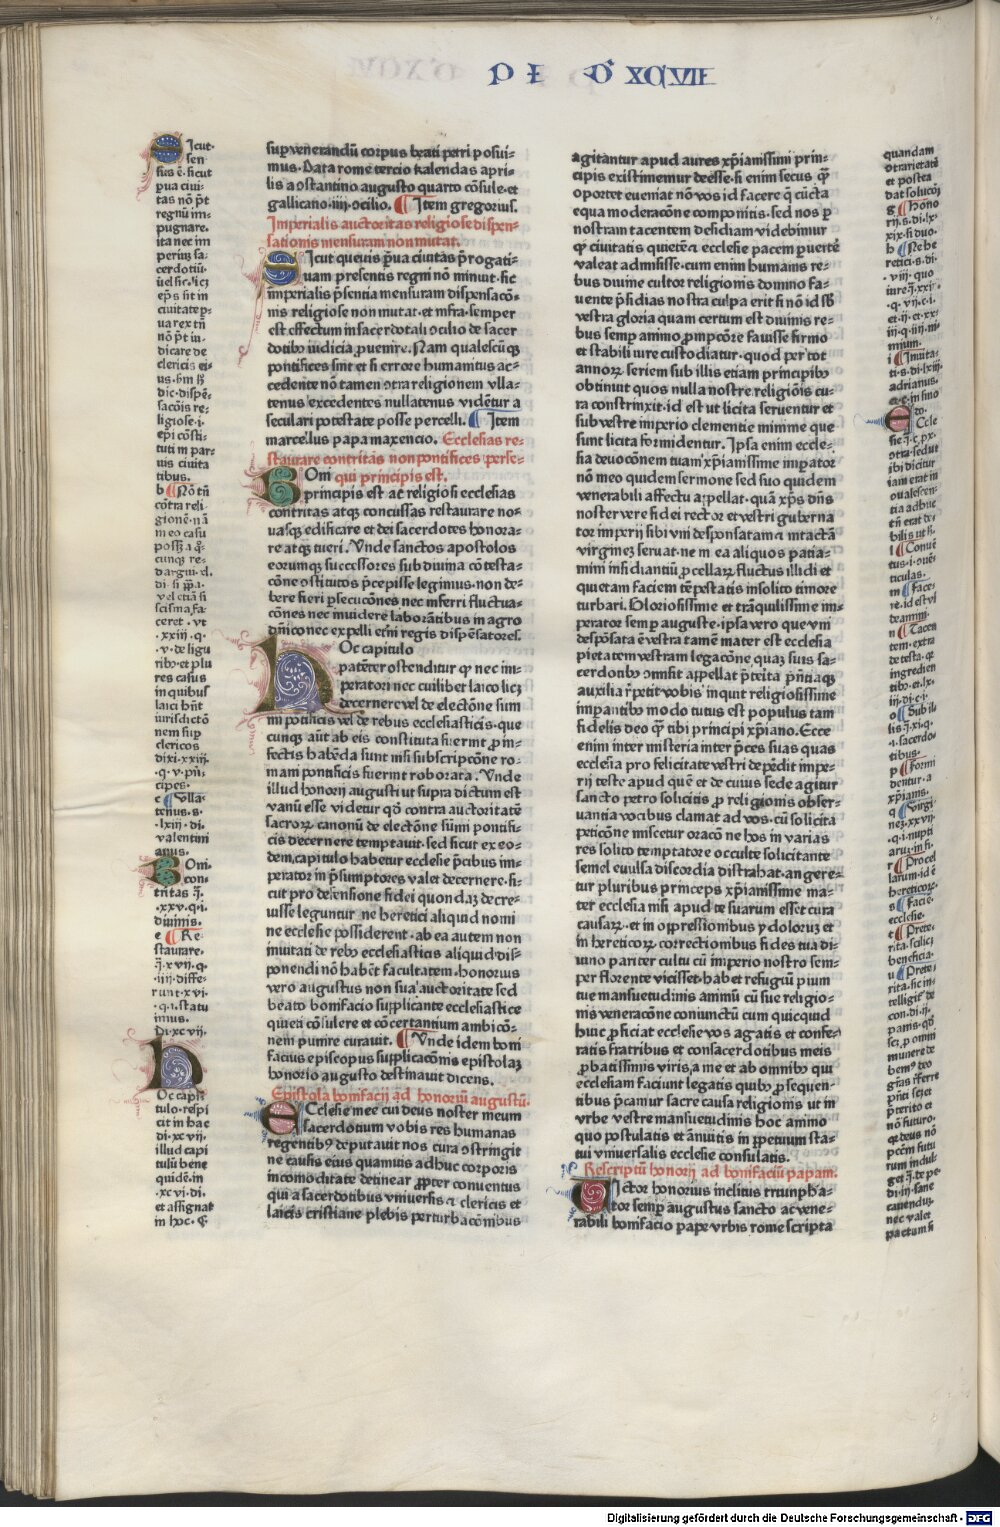 D I D' XCVII
Icut·
sen
sus ē· sicut
pua ciui-
tas nō pt̄
regnū im-
pugnare·
ita nec im
periuȝ sa-
cerdotiū·
uel sic· licȝ
ep̄s sit in
ciuitate p-
ua rex tn̄
nō pt̄ iu-
dicare de
clericis ei-
us·
dic· dispē-
sacōis re-
ligiose· i·
epī cōsti-
tuti in par-
uis ciuita
tibus.
b Nō tn̄
cōtra reli-
gionē·
in eo casu
cunqȝ re-
scisma fa-
ceret· vt
·xxiii·q·
·v· de ligu
ribȝ· et plu
res casus
in quibus
laici hn̄t
iurisdictō
nem sup
clericos
di·xi·xxiii·
·q·v·pn̄-
cipes·
c Vlla-
tenus· s·
·lxiii· di·
valentini
anus·
Boni·
con-
tritas
·xxv·q·i·
diuinis·
e Re-
staurare·
q̄·xvii·q·
·iiii· diffe-
runt·xvi·
·q·i· statu
imus·
Di·xcvii·
Hoc capi-
tulo· respi
cit in hac
di·xcvii·
illud capi
tulū bene
quidē· in
·xcvi·di·
et assignat
in hoc· §
sup venerandū corpus beati petri posui-
mus· Data rome tercio kalendas apri-
lis a ɔstantino augusto quarto cōsule· et
gallicano ·iiij· ɔcilio. Item gregorius.
Imperialis auctoritas religiose dispen-
sationis mensuram non mutat.
Sicut queuis pua ciuitas prōgati-
uam presentis regni nō minuit· sic
imperialis pn̄tia mensuram dispensacō-
nis religiose non mutat· et infra· semper
est effectum in sacerdotali ɔcilio de sacer
dotibȝ iudicia prouenire. Nam qualescūqȝ
pontifices sint et si errore humanitus ac-
cedente nō tamen ɔtra religionem vlla-
tenus excedentes nullatenus vident̄ur a
seculari potestate posse percelli. Item
marcellus papa maxencio. Ecclesias re-
staurare contritas non pontifices perse-
qui principis est.
Boni
principis est ac religiosi ecclesias
contritas atqȝ concussas restaurare no-
uasqȝ edificare et dei sacerdotes honora-
re atqȝ tueri. Vnde sanctos apostolos
eorumqȝ successores sub diuina cōtesta-
cōne ɔstitutos p̄cepisse legimus· non de-
bere fieri p̄secucōnes nec inferri fluctua-
cōnes nec inuidere laborātibus in agro
dn̄ico nec expelli et̄ni regis dispēsatores.
Hoc capitulo
patēter ostenditur qp nec im-
peratori nec cuilibet laico licȝ
decernere vel de electōne sum
mi pōtificis vel de rebus ecclesiasticis· que
cunqȝ aūt ab eis constituta fuerint p in-
fectis habēda sunt nisi subscripcōne ro-
mani pontificis fuerint roborata. Vnde
illud honorij augusti ut supra dictum est
vanū esse videtur qd contra auctoritatē
sacroꝝ canonū de electōne sūmi pontifi-
cis decernere temptauit· sed sicut ex eo-
dem capitulo habetur ecclesie p̄cibus im-
perator in p̄sumptores valet decernere· si-
cut pro defensione fidei quondaȝ decre-
uisse leguntur· ne heretici aliquid nomi
ne ecclesie possiderent· ab ea autem non
inuitati de rebȝ ecclesiasticis aliquid dis-
ponendi nō habēt facultatem· honorius
vero augustus non sua auctoritate sed
beato bonifacio supplicante ecclesiastice
quieti cōsulere et cōcertantium ambicō-
nem punire curauit. Vnde idem boni
facius episcopus supplicacōnis epistolaȝ
honorio augusto destinauit dicens.
Epistola bonifacij ad honoriū augustū.
Ecclesie mee cui deus noster meum
sacerdotium vobis res humanas
regentibȝ deputauit nos cura ɔstringit
ne causis eius quamuis adhuc corporis
incomoditate detinear ppter conuentus
qui a sacerdotibus vniuersis et clericis et
laicis cristiane plebis perturbacōnibus
agitantur apud aures xp̄ianissimi prin-
cipis existimemur deesse· si enim secus qp
oportet eueniat nō vos id facere q̄ cūcta
equa moderacōne componitis· sed nos p
nostram tacentem desidiam videbimur
qp ciuitatis quietē et ecclesie pacem puertē
valeat admisisse· cum enim humanis re-
bus diuine cultor religionis domino fa-
uente p̄sidias nostra culpa erit si nō id sb
vestra gloria quam certum est diuinis re-
bus semp animo pmpcōre fauisse firmo
et stabili iure custodiatur· quod per tot
annoꝝ seriem sub illis etiam principibȝ
obtinuit quos nulla nostre religiōis cu-
ra constrinxit· id est ut licita seruentur et
sub vestre imperio clementie minime que
sunt licita formidentur. Ipsa enim eccle-
sia deuocōnem tuam xp̄ianissime imperator
nō meo quidem sermone sed suo quidem
venerabili affectu appellat· quā xp̄s dn̄s
noster vere fidei rector et vestri guberna
tor imperij sibi vni desponsatam et intactā
virginem seruat· ne in ea aliquos patia-
mini insidiantiū pcellaꝝ fluctus illidi et
quietam faciem tēpestatis insolito timore
turbari. Gloriosissime et trāquilissime im-
perator semp auguste· ipsa vero que vni
despōsata ē vestra tamē mater est ecclesia
pietatem vestram legacōne quaȝ suis sa-
cerdotibȝ omisit appellat pterita pn̄tiaqȝ
auxilia repetit vobis inquit religiosissime
impantibȝ modo tutus est populus tam
fidelis deo qp tibi principi xp̄iano. Ecce
enim inter misteria inter p̄ces suas quas
ecclesia pro felicitate vestri depēdit impe-
rij teste apud quē et de cuius sede agitur
sancto petro solicitis p religionis obser-
uantia vocibus clamat ad vos· cū solicita
peticōne miscetur oracō ne hos in varias
res solito temptatore occulte solicitante
semel euulsa discordia distrahat· angere-
tur pluribus princeps xp̄ianissime ma-
ter ecclesia nisi apud te suarum esset cura
causaꝝ· et in oppressionibus ydoloruȝ et
in hereticoꝝ correctionibus fides tua di-
uino pariter cultu cū imperio nostro sem-
per florente vicisset· habet refugiū pium
tue mansuetudinis animū cū sue religio-
nis veneracōne coniunctū cum quicquid
huic pficiat ecclesie vos agatis et confe-
ratis fratribus et consacerdotibus meis
pbatissimis viris a me et ab omnibȝ qui
ecclesiam faciunt legatis quibȝ psequen-
tibus p̄camur sacre causa religionis ut in
vrbe vestre mansuetudinis hoc animo
quo postulatis et ānuitis in ppetuum sta-
tui vniuersalis ecclesie consulatis.
Rescriptū honorij ad bonifaciū papam.
Victor honorius inclitus triumpha-
tor semp augustus sancto ac vene-
rabili bonifacio pape vrbis rome scripta
quandam
ɔtrarietatē
et postea
dat solucōȝ
g Hono
rij· s· di·lx·
xix· si duo·
h Ne he
retici· s· di·
·viij· quo
iure· q̄·xxiij·
·q·vij·c·i·
et·ij· et·xx·
iii·q·iiij· ni-
mium·
i Inuita-
ti· s· di·lxiij·
adrianus·
Eccle
sie
ɔtra· sed ut
ibi dicitur
iam erat in
tia adhuc
tn̄ erat de-
bilis
l Conuē
tus· i· ɔuē-
ticulas·
m Face-
re· id est
n Tacen
tem· extra
de testa· qp
ingredien
tibȝ· et·lx·
iij· di· c·i·
o Sub il-
lis·
·i· sacerdo
tibus·
p Formi
dentur· a
xp̄ianis·
q Virgi
neȝ·xxvij·
·q·i· nupti
arum· in fi·
r Procel
larum· id ē
hereticoꝝ·
s Facie·
ecclesie·
t Prete-
rita· scilicȝ
beneficia·
u Prete-
rita· sic in-
telligit̄ de
con· di·ij·
panis· qd
sicȝ p omni
munere de
bemȝ deo
grās referre
pn̄ti scȝ et
pterito et
nō futuro·
qp deus nō
peccm̄ futu
rum indul
get
di·iij· sane
cauendū·
nec valet
pactum si
Digitalisierung gefördert durch die Deutsche Forschungsgemeinschaft - DFG